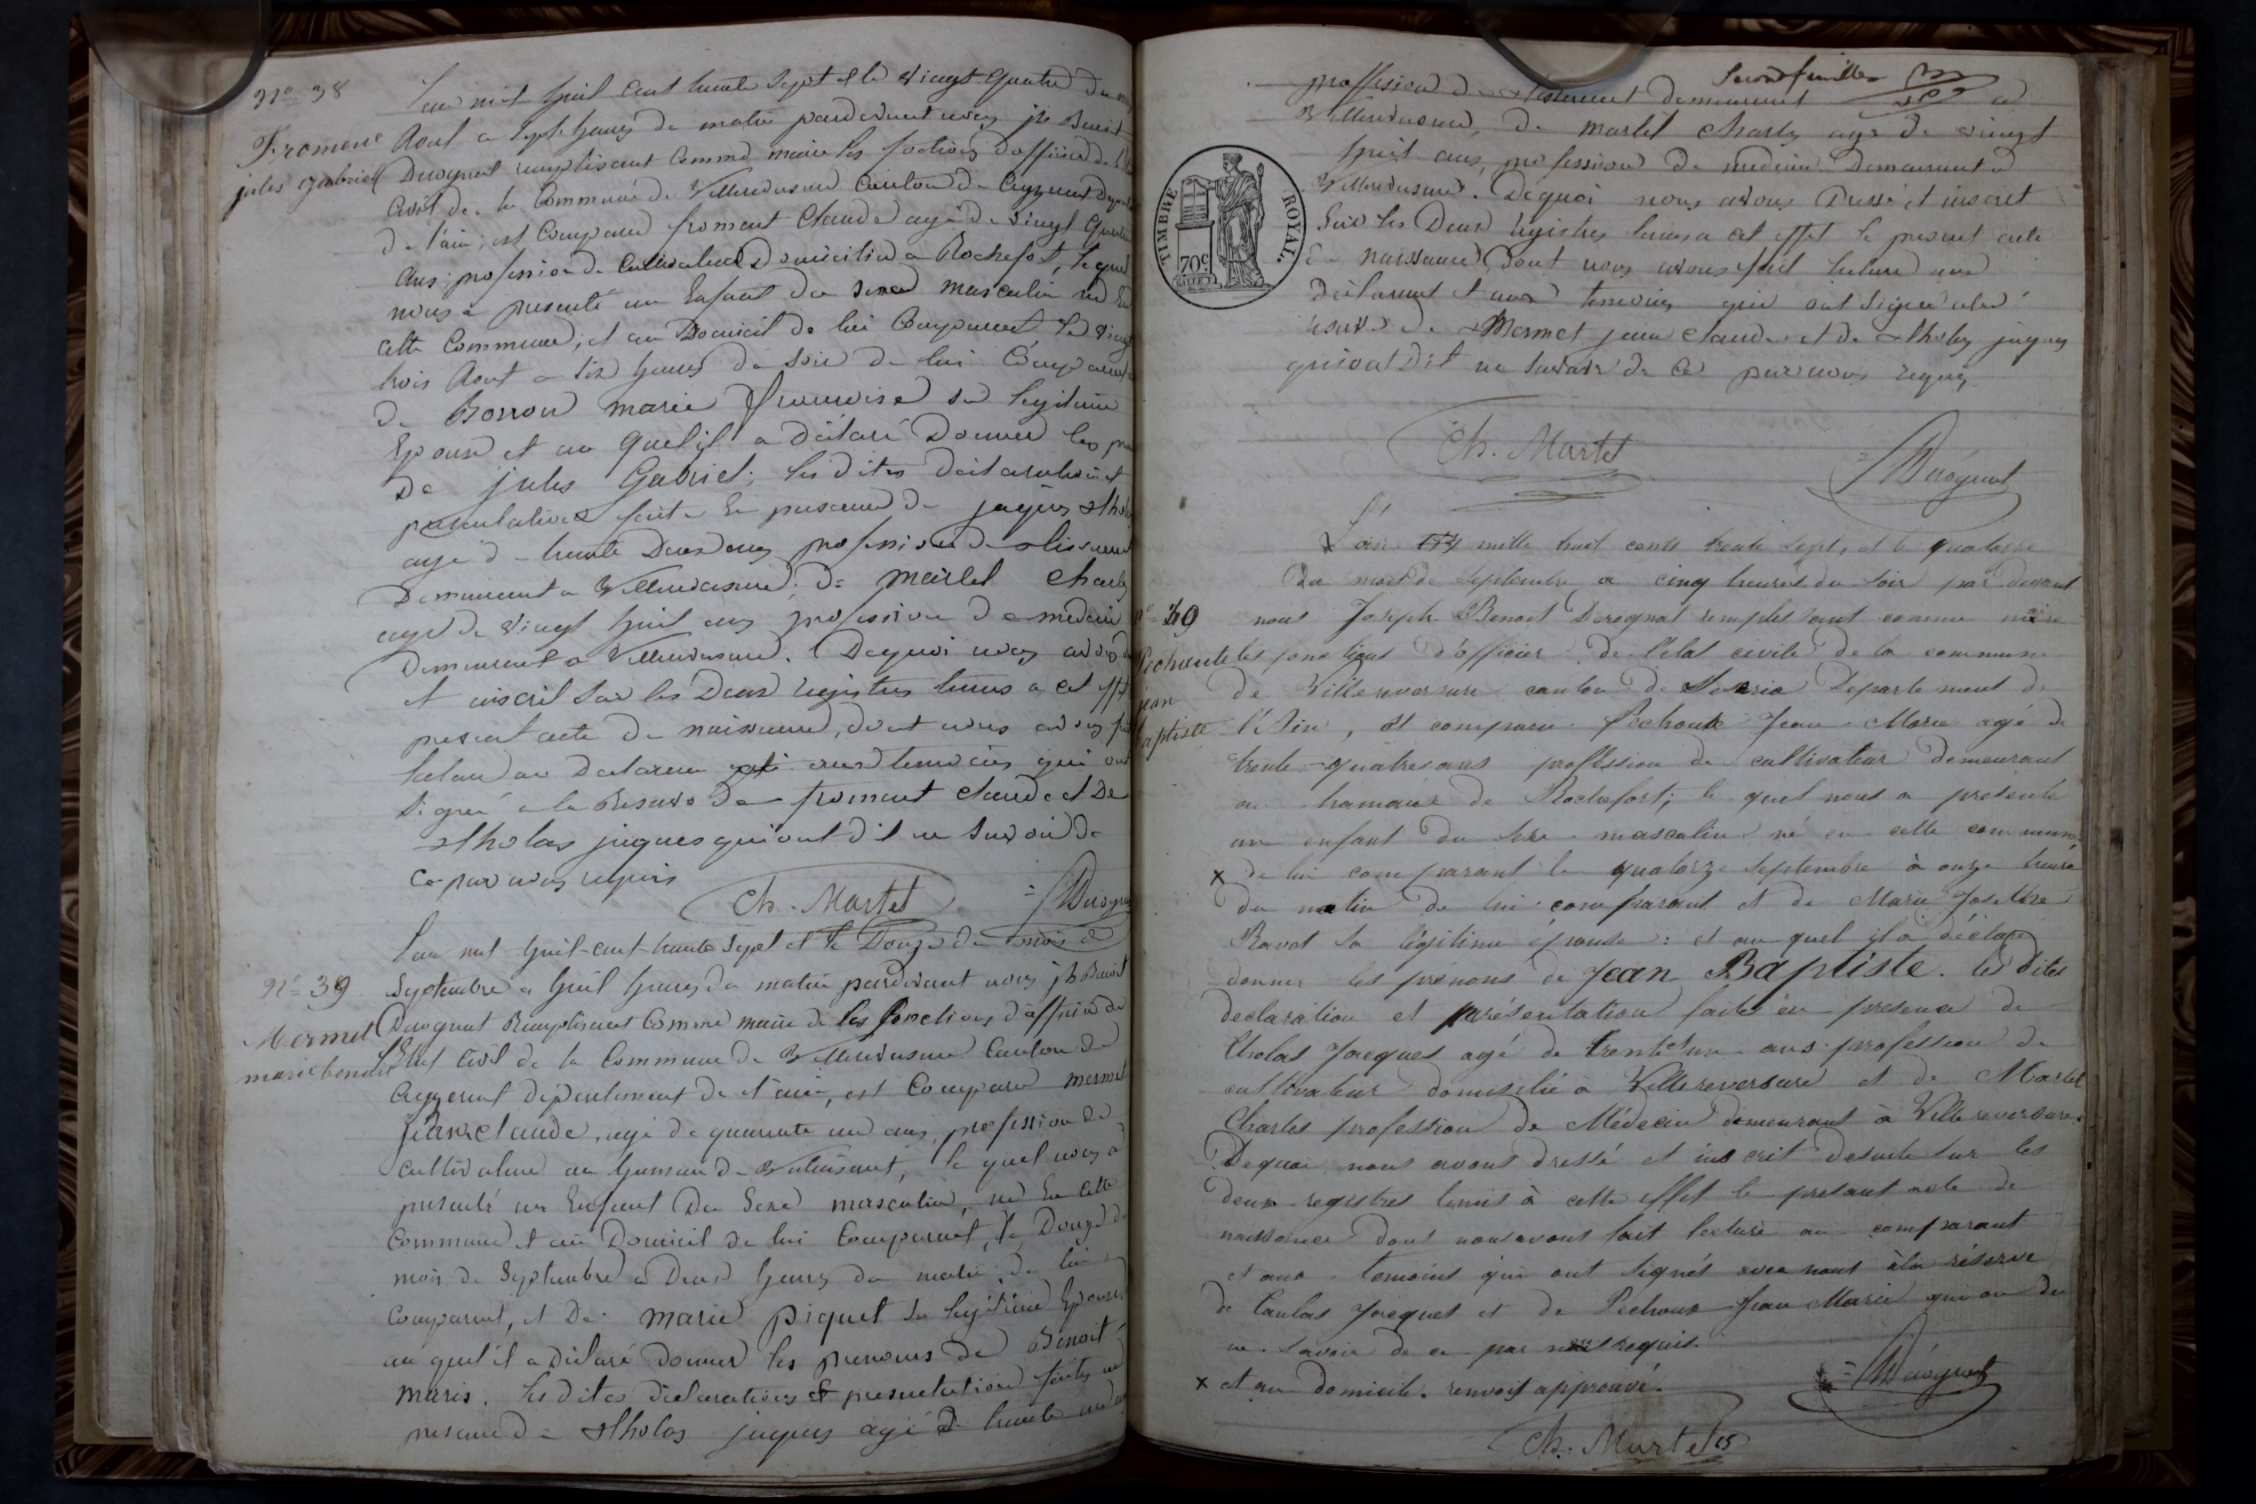 N° 38
froment
jules gabriel
L'an mil huit cent trente sept et le vingt quatre du
Aout a sept heures du matin pardevant nous jh Benoit
Derognat remplissant comme maire les fonctions d'officier de
Civil de la Commune de Villereversure Canton de Ceyzeriat
de l'ain; est Comparu froment Claude agé de vingt quatre
ans; profession de Cultivateur Domicilié a Rochefort, lequel
nous a presenté un Enfant du sexe masculin né En
cette Commune; et au Domicil de lui Comparant le vingt
trois Aout a dix heures du soir de lui Comparant
de Borron marie françoise sa legitime
Epouse et au quel il a déclaré Donner les
De jules Gabriel; les dites déclaration et
presentation faite En presence de jaques
agé de trente Deux ans profession de tisserand
Demeurant a Villereversure; de martel Charles
agé de vingt huit ans profession de medecin
Demeurant a Villereversure. Dequoi nous avons
et inscrit sur les Deux registres tenus a cet effet
present acte de naissance, dont nous avons fait
lecture au Declarant et aux temoins qui ont
signé a la Reserve de froment Claude et De
Tholas jaques qui ont dit ne Savoir de
ce par nous requis
Ch. Martel Derognat
N° 39
Mermet
marie benoit
L'an mil huit cent trente sept et le Douze du mois de
Septembre a huit heures du matin pardevant nous jh Benoit
Derognat Remplissant Comme maire de les fonctions d'officier de
l'Etat Civil de la Commune de Villereversure Canton de
Ceyzeriat département de l'ain, est Comparu mermet
jean claude, agé de quarante un ans, profession de
cultivateur au hameau de, le quel nous a
presenté un Enfant Du Sexe masculin, né En cette
Commune et au Domicil de lui Comparant, le Douze du
mois de Septembre a Deux heures du matin de lui
Comparant, et De marie piquet sa legitime Epouse
au quel il a Déclaré Donner les prenoms de Benoit
marie. Les dites déclarations et presentation faites en
presence de Tholas jaques agé de trente un
Second feuillet
profession de tisserand demeurant a
Villereversure, de martel Charles agé de vingt
huit ans, profession de medecin Demeurant a
Villereversure. Dequoi nous avons Dressé et inscrit
Sur les Deux registres tenus a cet effet le present acte
de naissance, Dont nous avons fait lecture au
déclarant et aux temoins qui ont signé a la
reserve de Mermet jean Claude et de Tholas jaques
qui ont Dit ne Savoir de ce par nous requis
TIMBRE ROYAL.
70c
Ch. Martel
Derognat
n° 40
Pechoux
jean
baptiste
L'an mille huit cents trente sept, et le quatorze
Du mois de septembre a cinq heures du soir par devant
nous Joseph Benoit Derognat remplissant comme maire
les fonctions d'officier de l'etat civile de la commune
de Villereversure canton de Département de
l'Ain, est comparu Pechoux Jean Marie agé de
trente-quatre ans proffession de cultivateur demeurant
au hameaux de Rochefort; le quel nous a présenté
un enfant du sexe masculin né en cette commune,
x de lui comparant le quatorze septembre à onze heures
du matin de lui comparant et de Marie Josette
Ravat sa légitime épouse: et au quel il a déclaré
donner les prénoms de Jean Baptiste. les dites
declaration et présentation faites en presence de
Tholas Jacques agé de trente un ans profession de
cultivateur domicilié à Villereversure et de Martel
Charles profession de Médecin demeurant à Villereversure.
Dequoi nous avons dressé et inscrit desuite sur les
deux registres tenus à cette effet le présent acte de
naissance dont nous avons fait lecture au comparant
et aux temoins qui ont signés avec nous à la réserve
de Jacques et de Pechoux Jean Marie qui on du
ne savoir de ce par nous requis.
x et au domicile. renvoit approuvé.
Derognat
Ch. Martel